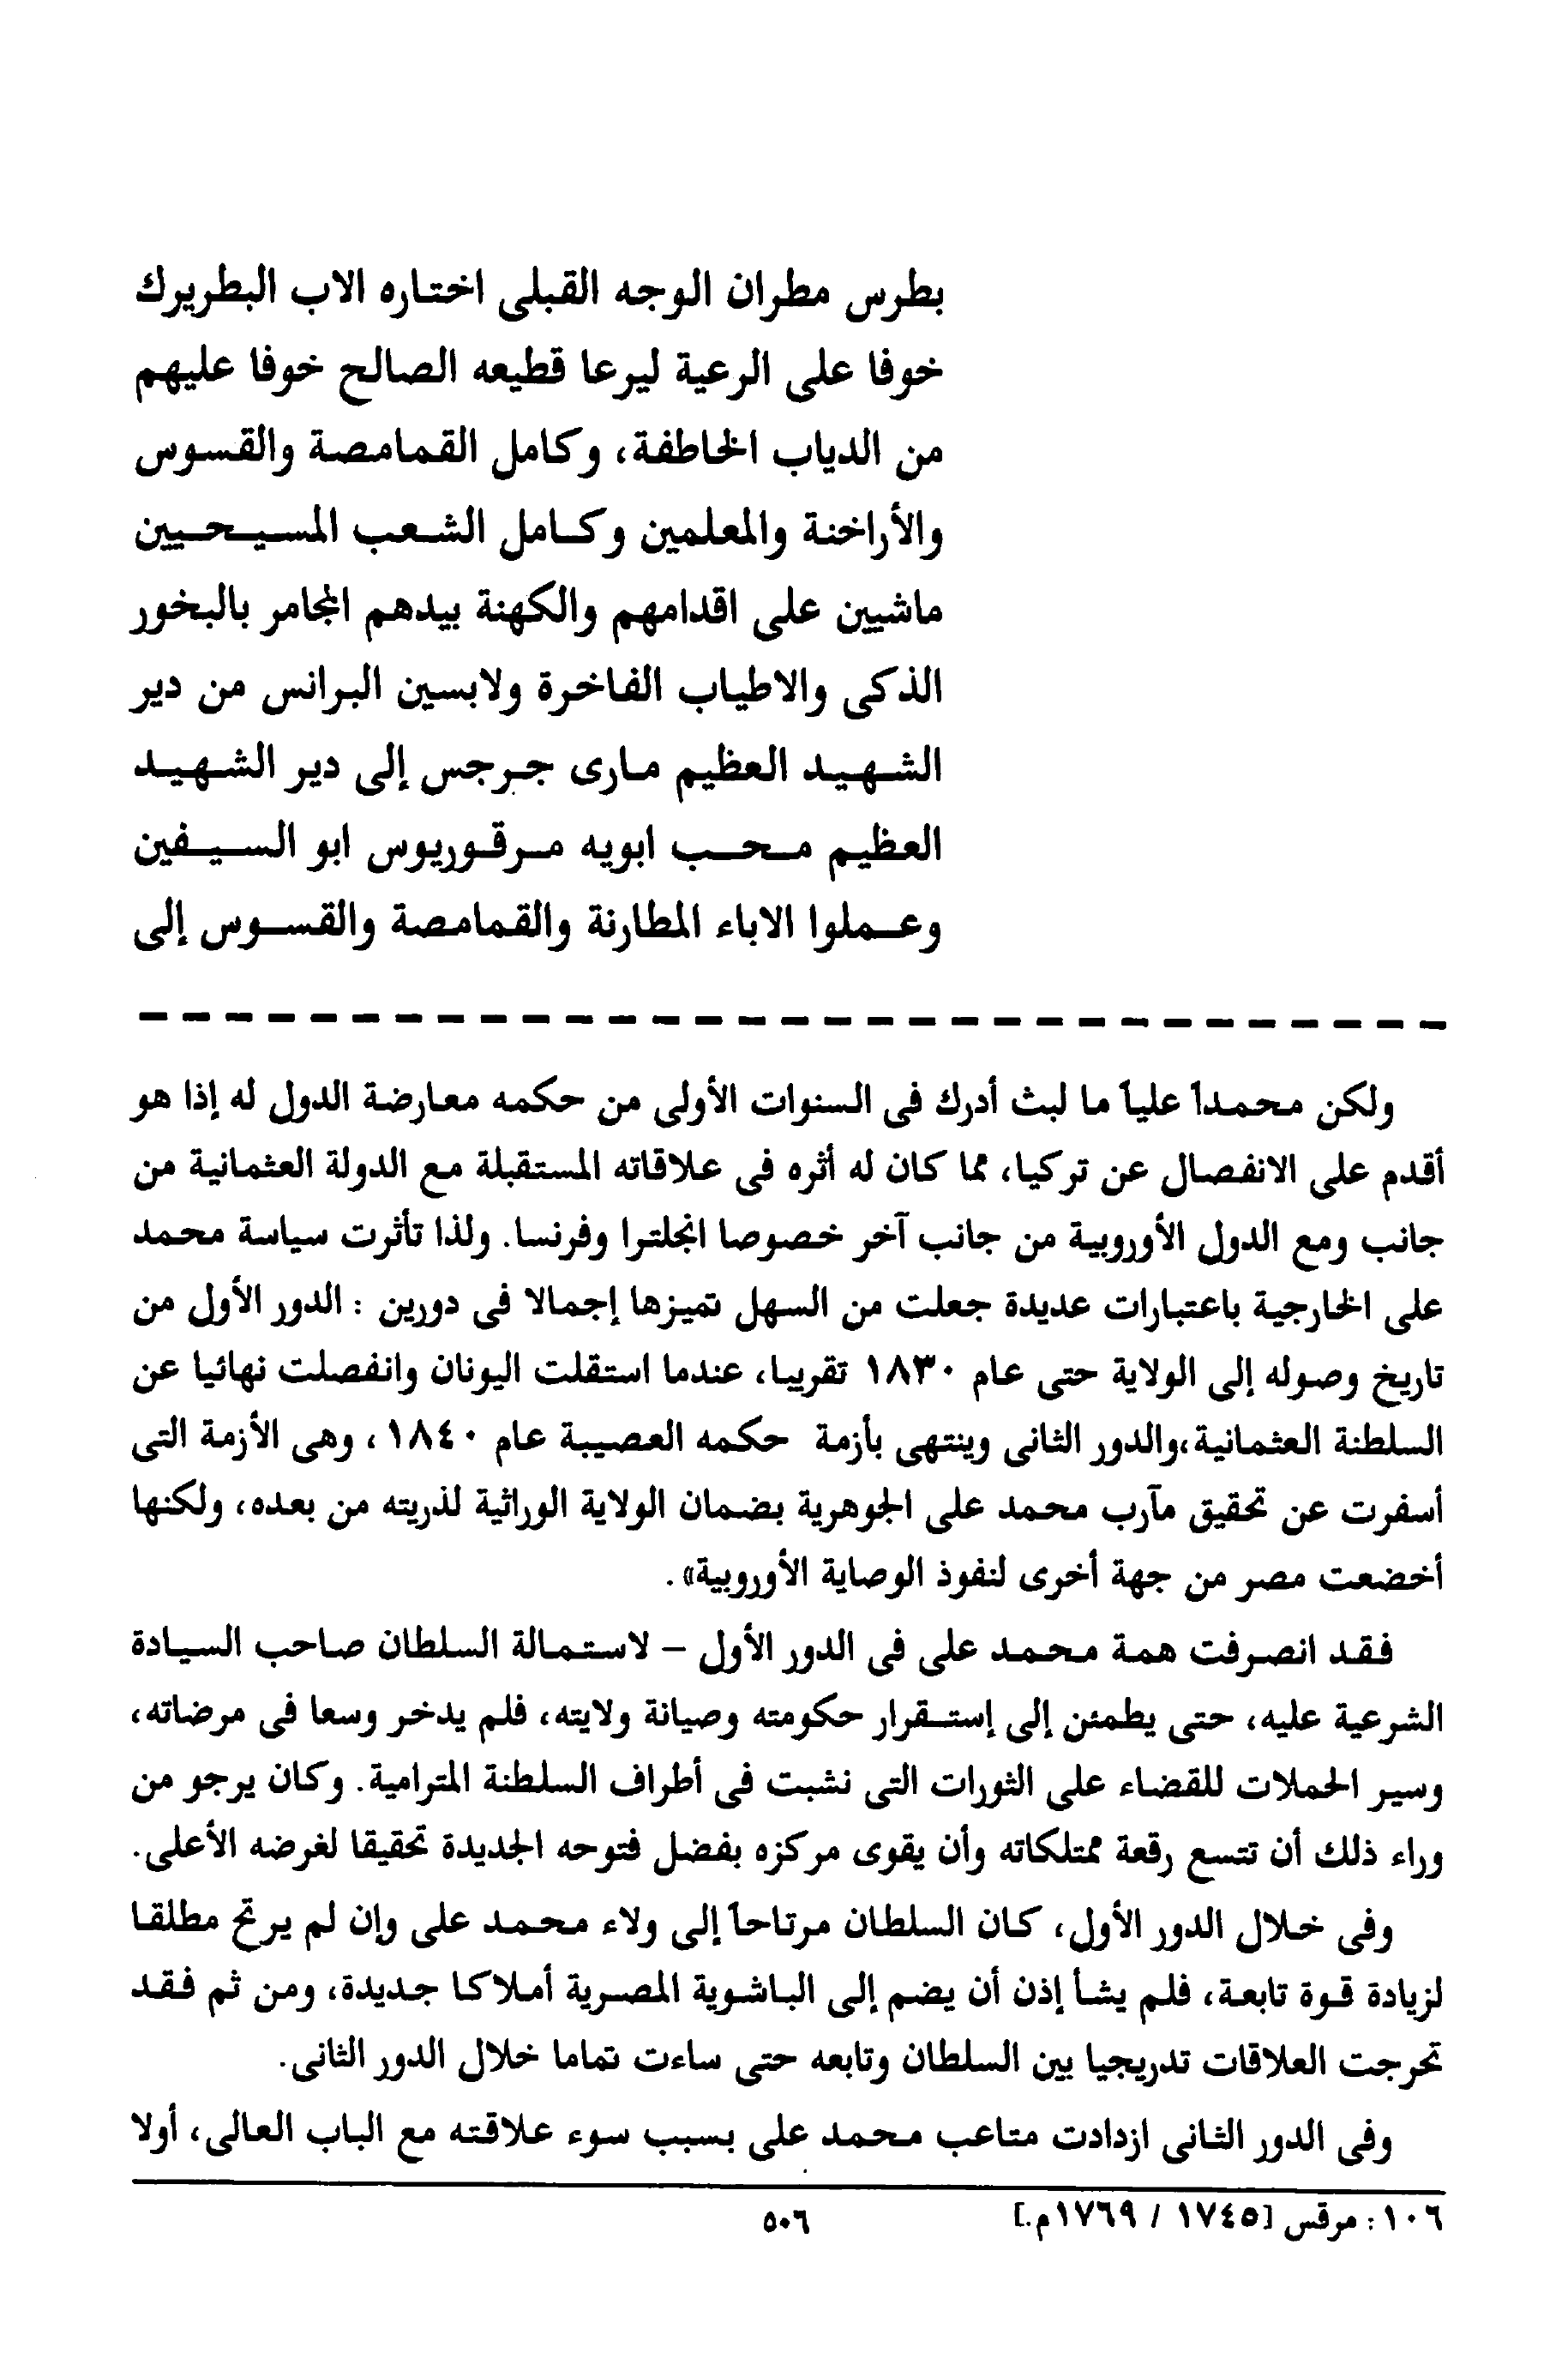 بطرس مطران الوجه القبلى اختاره الاب البطريرك
خوفا على الرعية ليرعا قطيعه الصالح خوفا عليهم
من الدياب الخاطفة، وكامل القمامصة والقسوس
والأراخنة والمعلمين وكامل الشعب المسيحيين
ماشيين على اقدامهم والكهنة بيدهم المجامر بالبخور
الذكى والاطياب الفاخرة ولابسين البرانس من دير
الشهيد العظيم مارى جرجس إلى دير الشهيد
العظيم محب ابويه مرقوريوس ابو السيفين
وعملوا الاباء المطارنة والقمامصة والقسوس إلى
ولكن محمداً علياً ما لبث أدرك فى السنوات الأولى من حكمه معارضة الدول له إذا هو
أقدم على الانفصال عن تركيا، مما كان له أثره فى علاقاته المستقبلة مع الدولة العثمانية من
جانب ومع الدول الأوروبية من جانب آخر خصوصا انجلترا وفرنسا. ولذا تأثرت سياسة محمد
على الخارجية باعتبارات عديدة جعلت من السهل تميزها إجمالا فى دورين : الدور الأول من
تاريخ وصوله إلى الولاية حتى عام ١٨٣٠ تقريبا، عندما استقلت اليونان وانفصلت نهائيا عن
السلطنة العثمانية،والدور الثانى وينتهى بأزمة حكمه العصيبة عام ١٨٤٠ ، وهى الأزمة التى
أسفرت عن تحقيق مآرب محمد على الجوهرية بضمان الولاية الوراثية لذريته من بعده، ولكنها
أخضعت مصر من جهة أخرى لنفوذ الوصاية الأوروبية».
فقد انصرفت همة محمد على فى الدور الأول – لاستمالة السلطان صاحب السيادة
الشرعية عليه، حتى يطمئن إلى إستقرار حكومته وصيانة ولايته، فلم يدخر وسعا فى مرضاته،
وسير الحملات للقضاء على الثورات التى نشبت فى أطراف السلطنة المترامية. وكان يرجو من
وراء ذلك أن تتسع رقعة ممتلكاته وأن يقوى مركزه بفضل فتوحه الجديدة تحقيقا لغرضه الأعلى.
وفى خلال الدور الأول، كان السلطان مرتاحاً إلى ولاء محمد على وإن لم يرتح مطلقا
لزيادة قوة تابعة، فلم يشأ إذن أن يضم إلى الباشوية المصرية أملاكا جديدة، ومن ثم فقد
تحرجت العلاقات تدريجيا بين السلطان وتابعه حتى ساءت تماما خلال الدور الثانى.
وفى الدور الثانى ازدادت متاعب محمد على بسبب سوء علاقته مع الباب العالى، أولا
١٠٦: مرقس [١٧٤٥ / ١٧٦٩م.]
٥٠٦